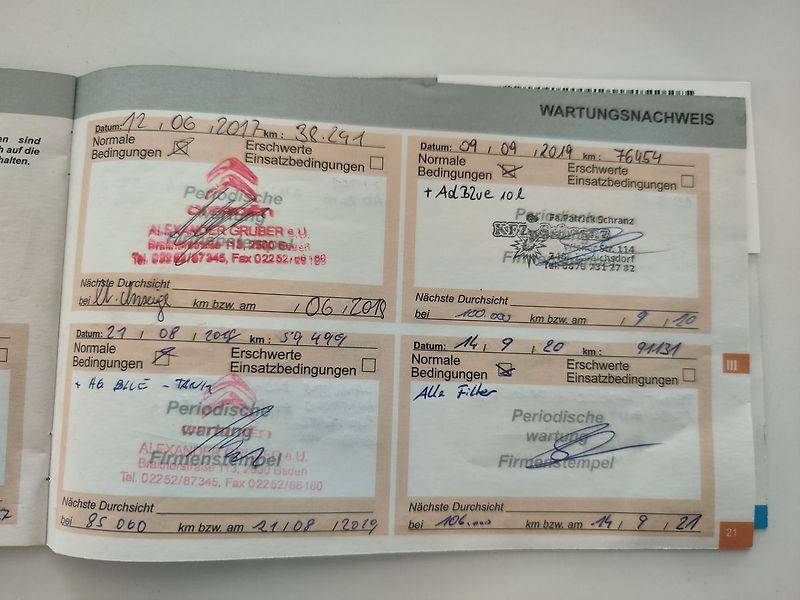 en sind
h auf die
halten.
WARTUNGSNACHWEIS
Datum: 12 , 06 , 2017 km : 38.241
Normale
Bedingungen
Erschwerte
Einsatzbedingungen
Periodische
ALEXANDER GRUBER e.U.
113, 2500 Baden
Tel. 02252/87345, Fax 02252/86180
Nächste Durchsicht
bei
km bzw. am , 06 , 2018
Datum: 21 , 08 , 2018 km : 59 499
Normale
Bedingungen
Erschwerte
Einsatzbedingungen
+ AD BLUE - TANK
Periodische
wartung
ALEXANDER e.U.
Firmenstempel
113, 2500 Baden
Tel. 02252/87345, Fax 02252/86180
Nächste Durchsicht
bei 85 000 km bzw. am 21 / 08 / 2019
Datum: 09 , 09 , 2019 km : 76454
Normale
Bedingungen
Erschwerte
Einsatzbedingungen
+ AdBlue 10 l
Fa. Patrick Schranz
Str. 114
Nächste Durchsicht
bei 100.000 km bzw. am , 9 , 20
Datum: 14 , 9 , 20 km : 91131
Normale
Bedingungen
Erschwerte
Einsatzbedingungen
Alle Filter
Periodische
wartung
Firmenstempel
Nächste Durchsicht
bei 106.000 km bzw. am 14 , 9 , 21
III
21